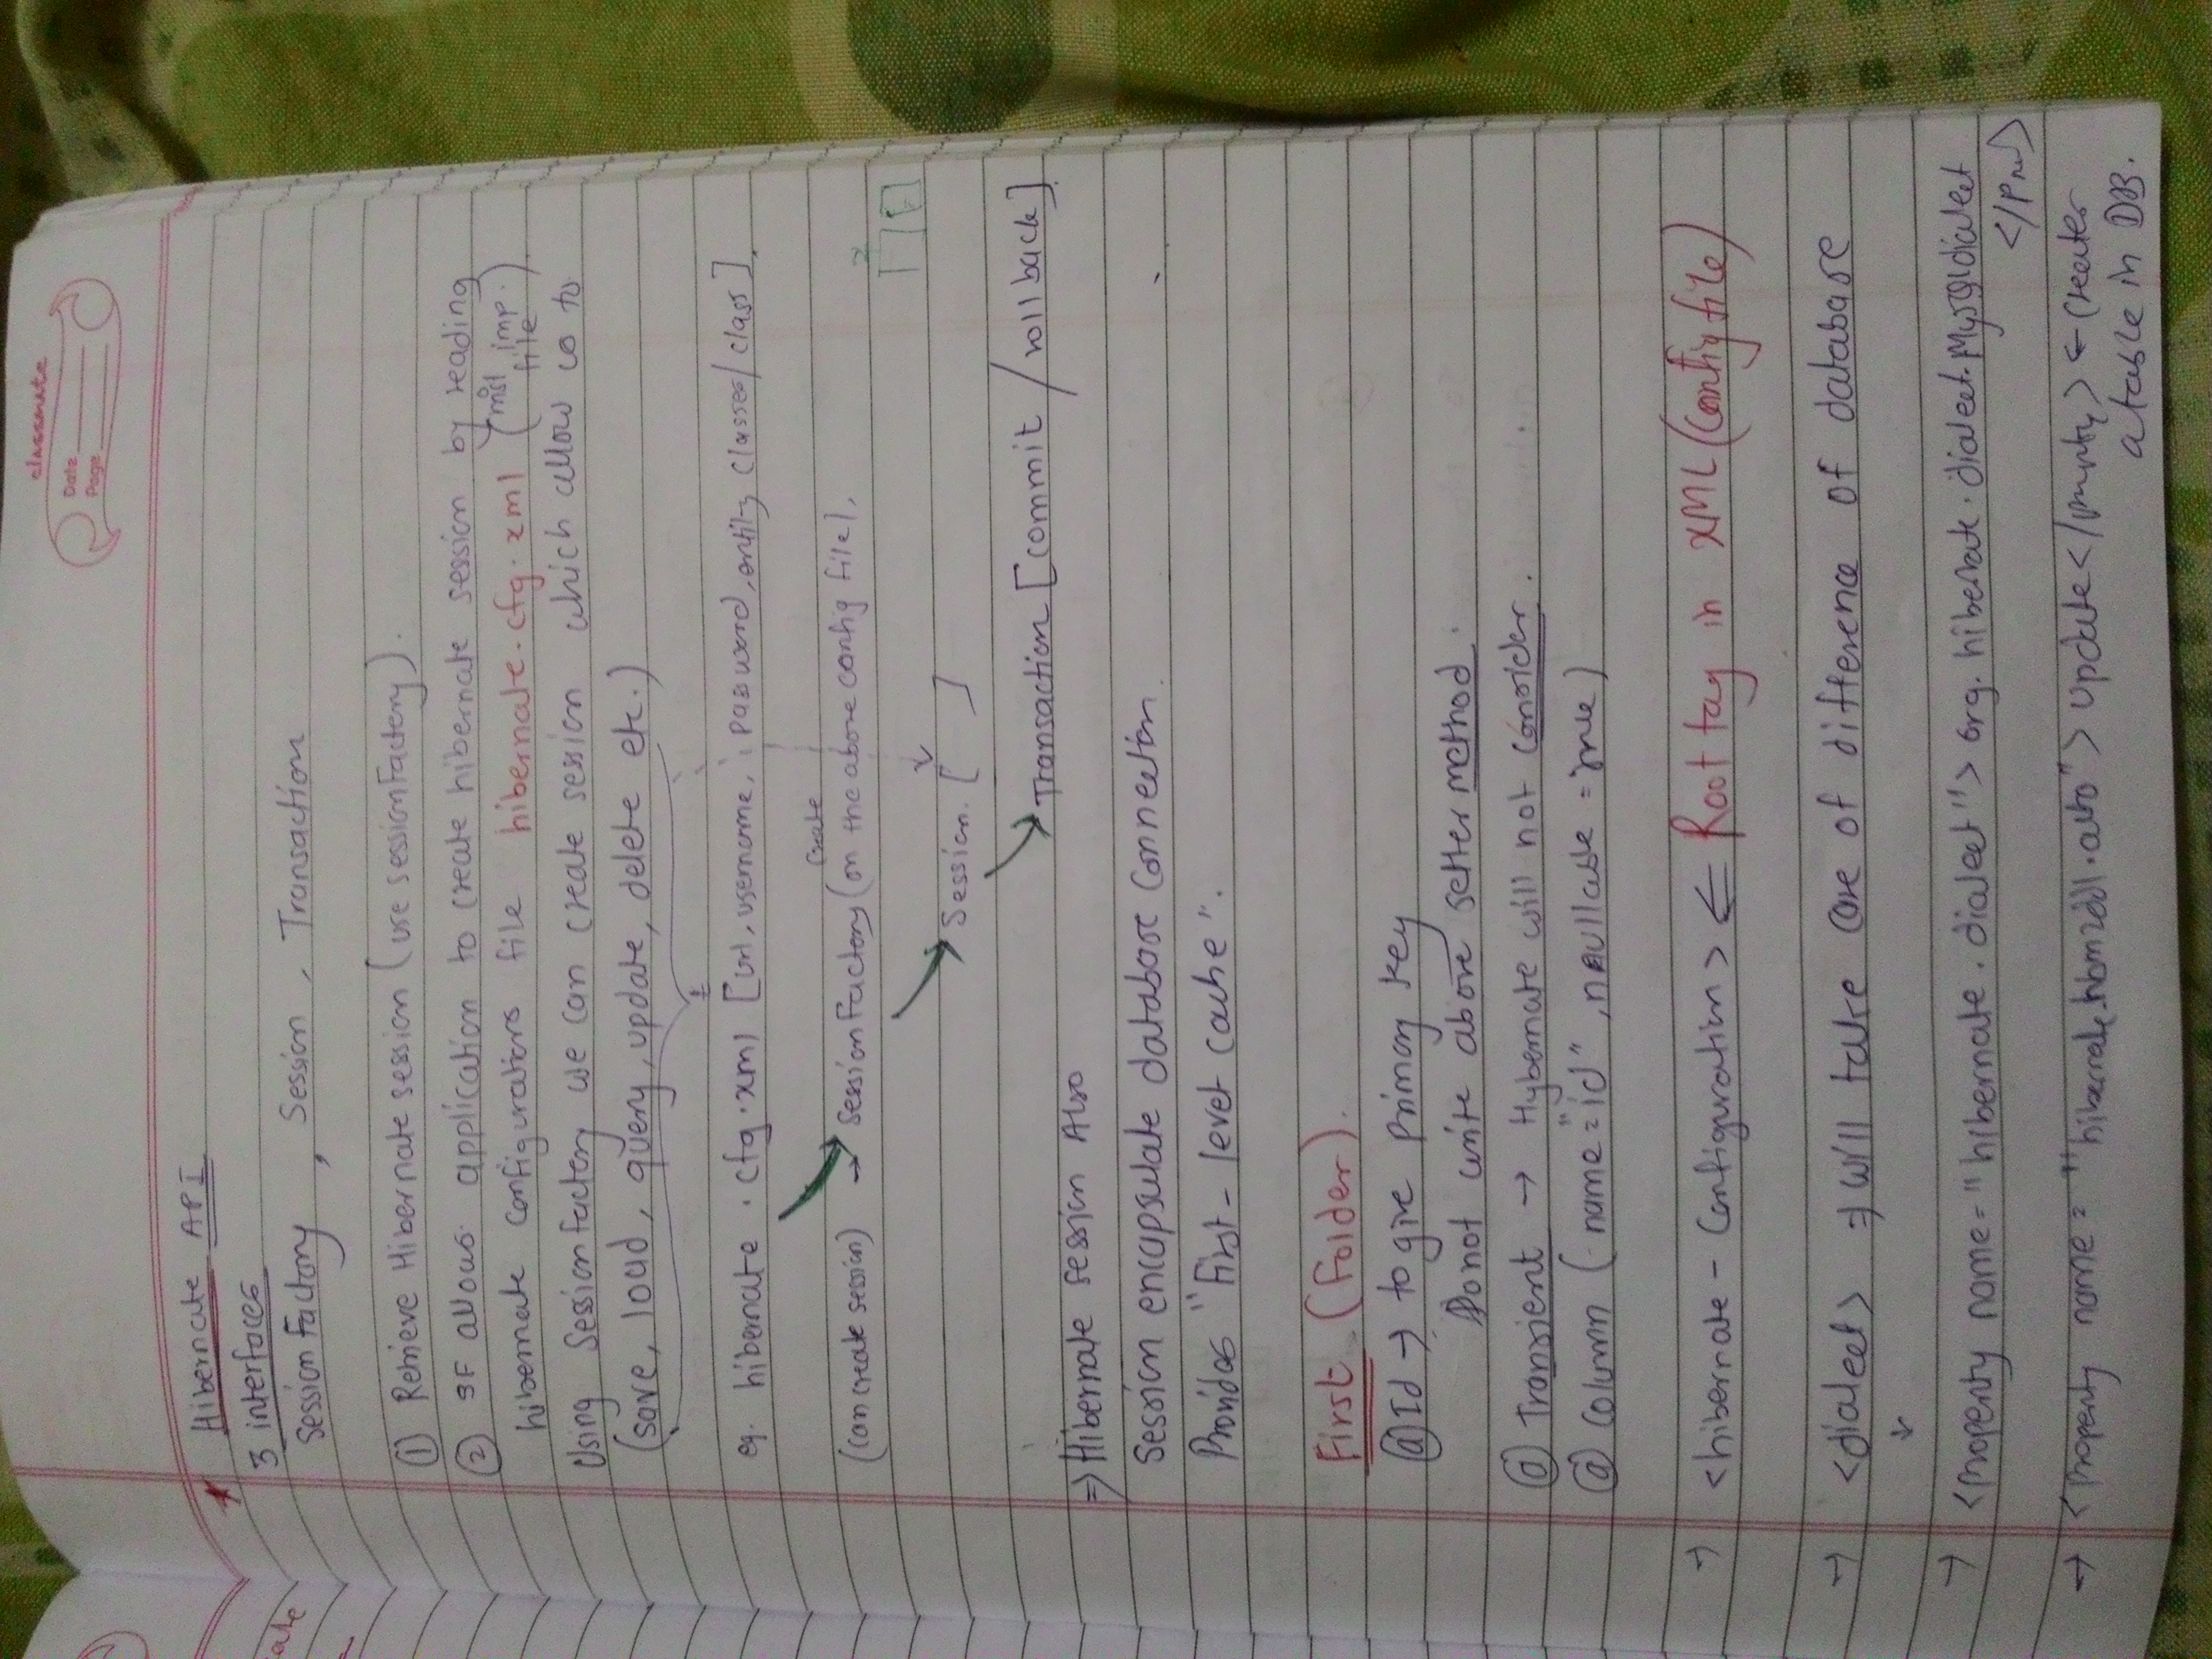 classmate
Date
Page
ate
Hibernate API
3 interfaces
Session Factory , Session , Transaction
① Retrieve Hibernate session (use sessionFactory).
② SF allows application to create hibernate session by reading
hibernate configurations file hibernate.cfg.xml (mst imp. file)
Using Sessionfactory we can create session which allow us to
(save, load, query, update, delete etc.)
eg. hibernate .cfg.xml [url, username, password, entity classes/class].
create
(can create session) → Sessionfactory (on the above config file).
Session. [ ]
Transaction [commit / rollback]
⇒ Hibernate session Also
Session encapsulate database connection.
Provides "First-level cache".
First (Folder).
@Id → to give primary key
Do not write above setter method.
@ Transient → Hybernate will not consider.
@ column (name="id", nullable = true)
→ <hibernate-Configuration> ⇐ Root tag in XML (Config file)
→ <dialect> ⇒ will take care of difference of database
→ <property name="hibernate.dialect"> org.hibernate.dialect.MySQLdialect
→ <property name= "hibernate.hbm2ddl.auto"> update</property> ← creater
a table in DB.